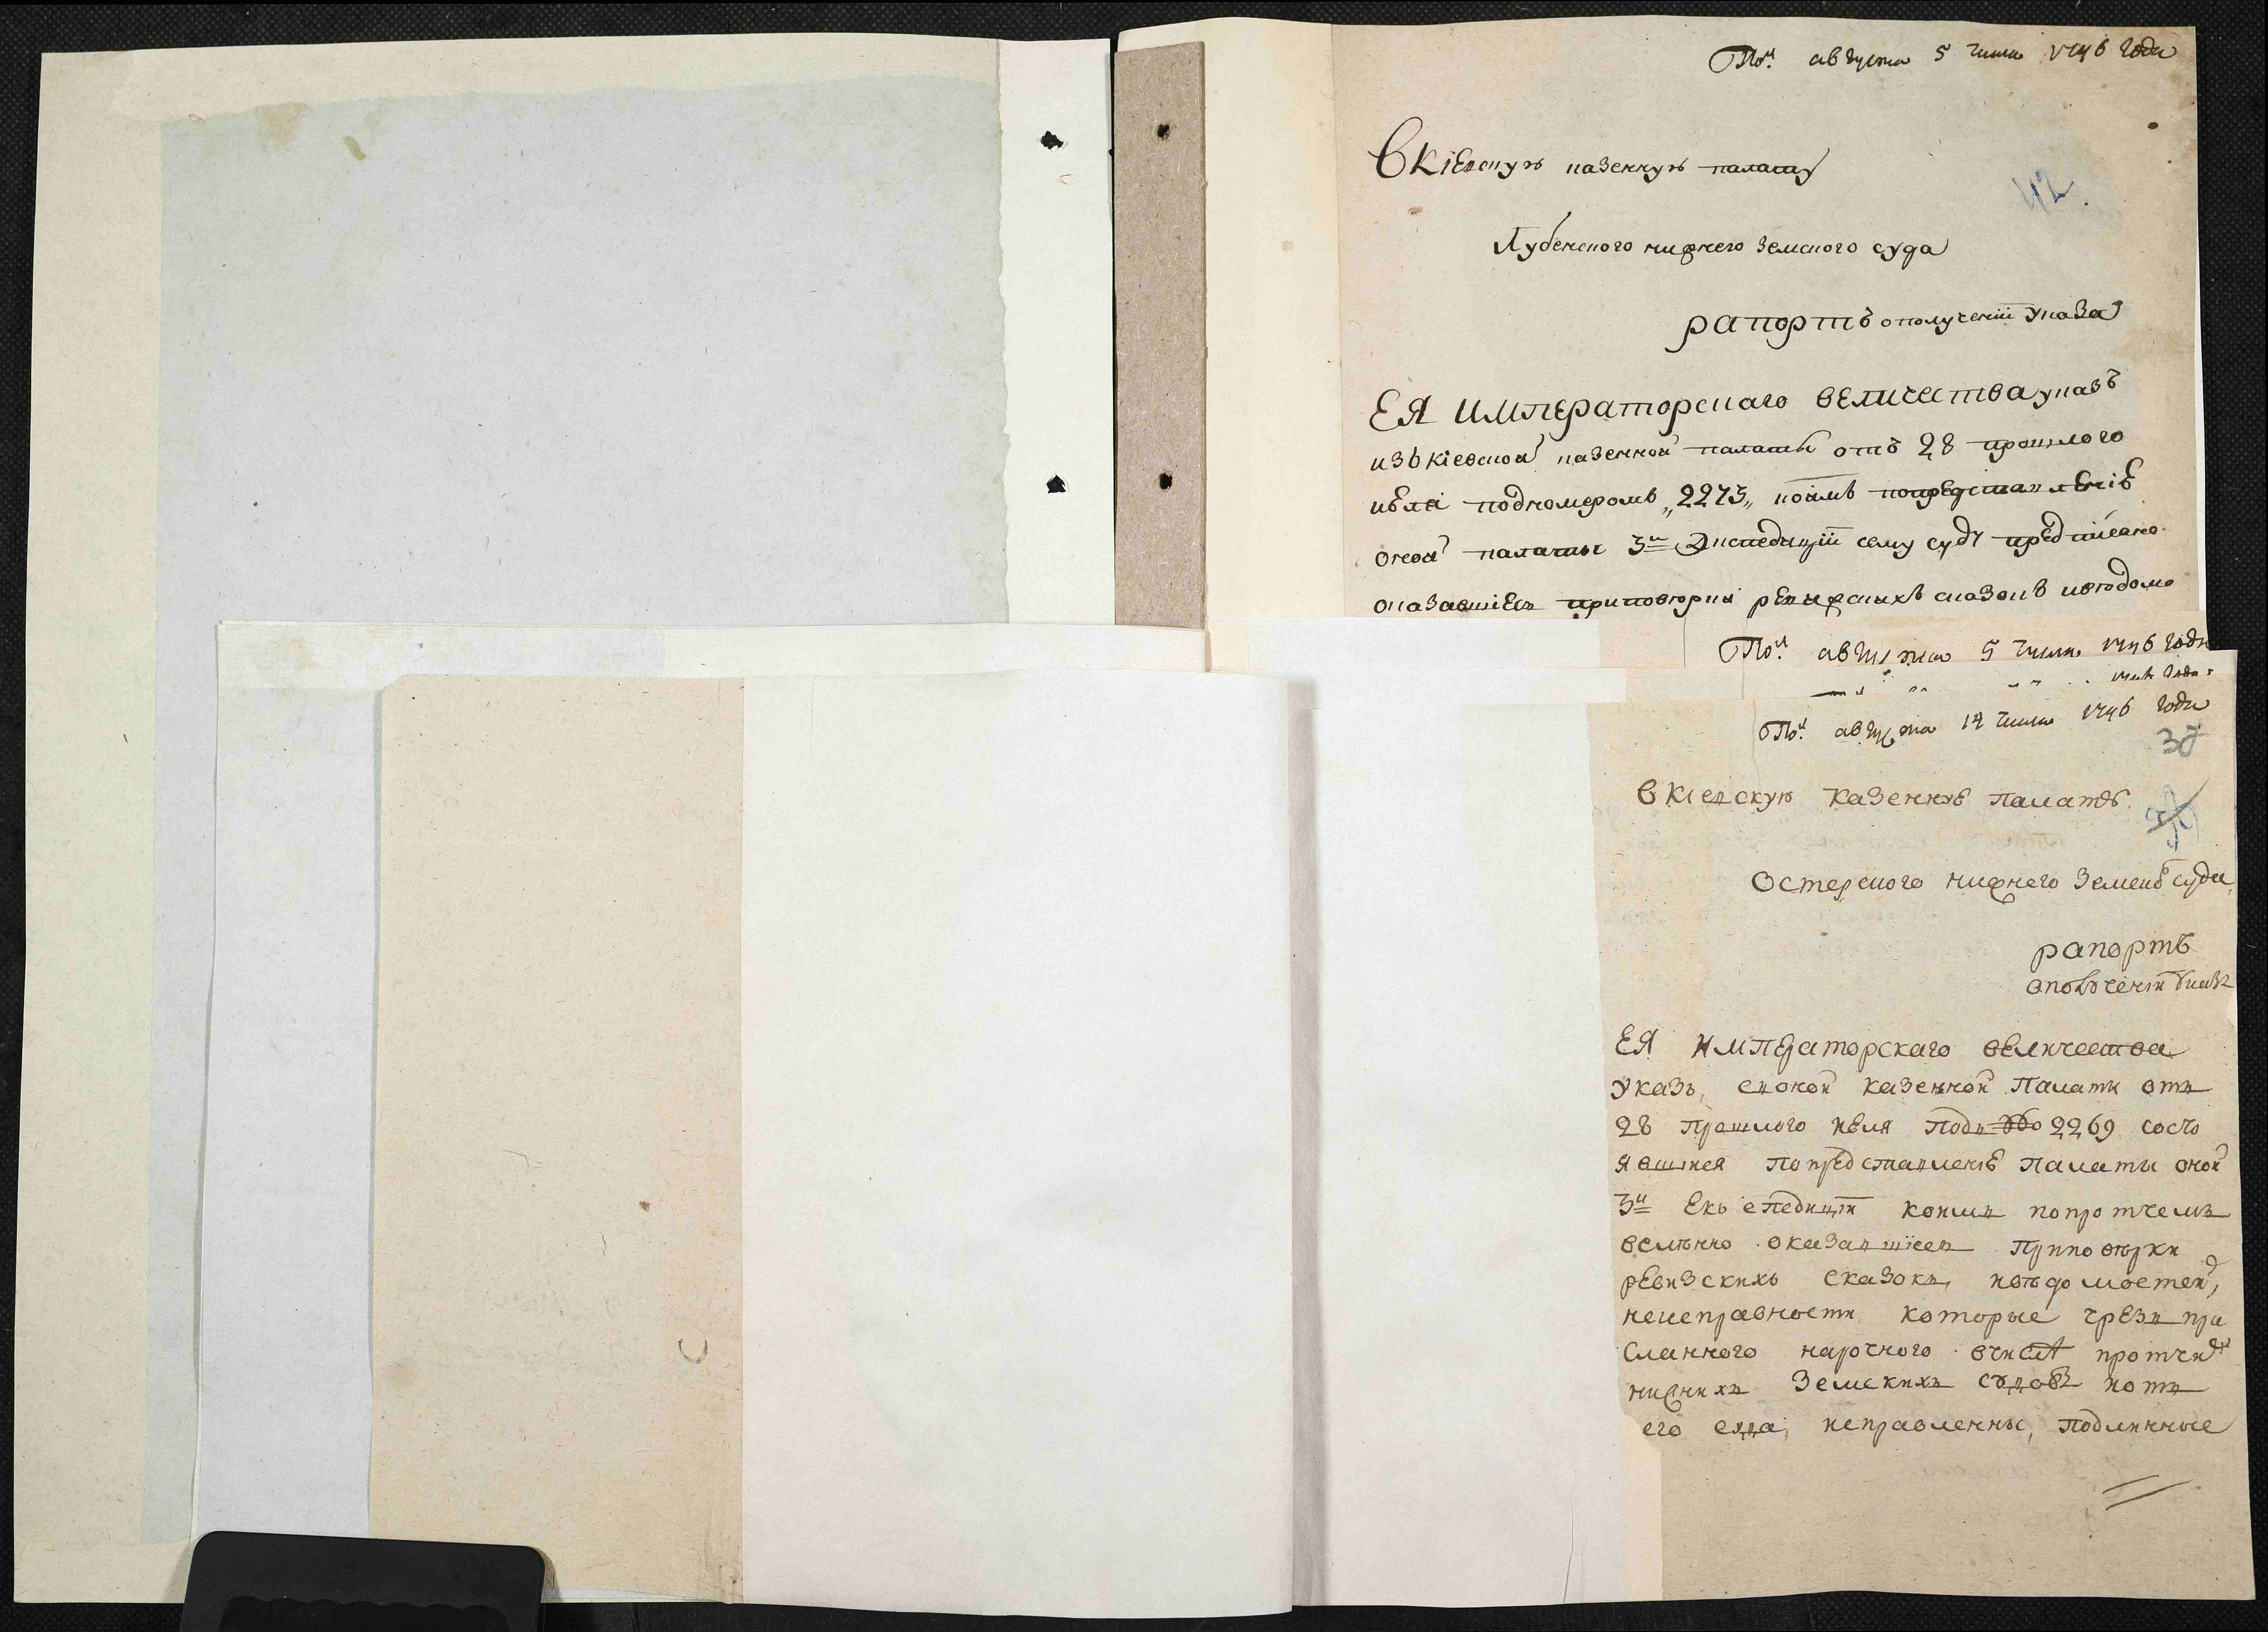 Пол. августа 5 числа 1796 года
42.
В Кіевскую казенную палату
Лубенского нижнего Земского суда
рапортъ о полученіи указа
ЕЯ ИМПЕРАТОРСКАГО ВЕЛИЧЕСТВА указъ
изъ кіевской казенной палаты отъ 28 прошлого
июля подномеромъ „2275„ коимъ попредставленіе
оной палаты 3й Экспедиціи сему суду предписано
оказавшіеся приповѣрки ревизскихъ сказокъ ивѣдомо
Пол. августа 5 числа 1796 года
Пол. августа 14 числа 1796 года
37
В Кіевскую казенную Палату.
Остерского нижнего Земског суда
рапортъ
ополученіи указа
ЕЯ ИМПЕРАТОРСКАГО ВЕЛИЧЕСТВА
указъ, сѣоной казенной Палаты отъ
28 прошлого июля Подъ № 2269 состо
явшися Попредставленіе Палаты оной
3й Екьспедиціи коимъ попротчемъ
велѣнно оказавшіеся Приповѣрки
ревизскихъ сказокъ, ивѣдомостей,
неисправности которые чрезъ при
сланного нарочного вчислѣ протчих
нижнихъ Земскихъ судовъ иотъ
его суда, исправленны, Подлинные